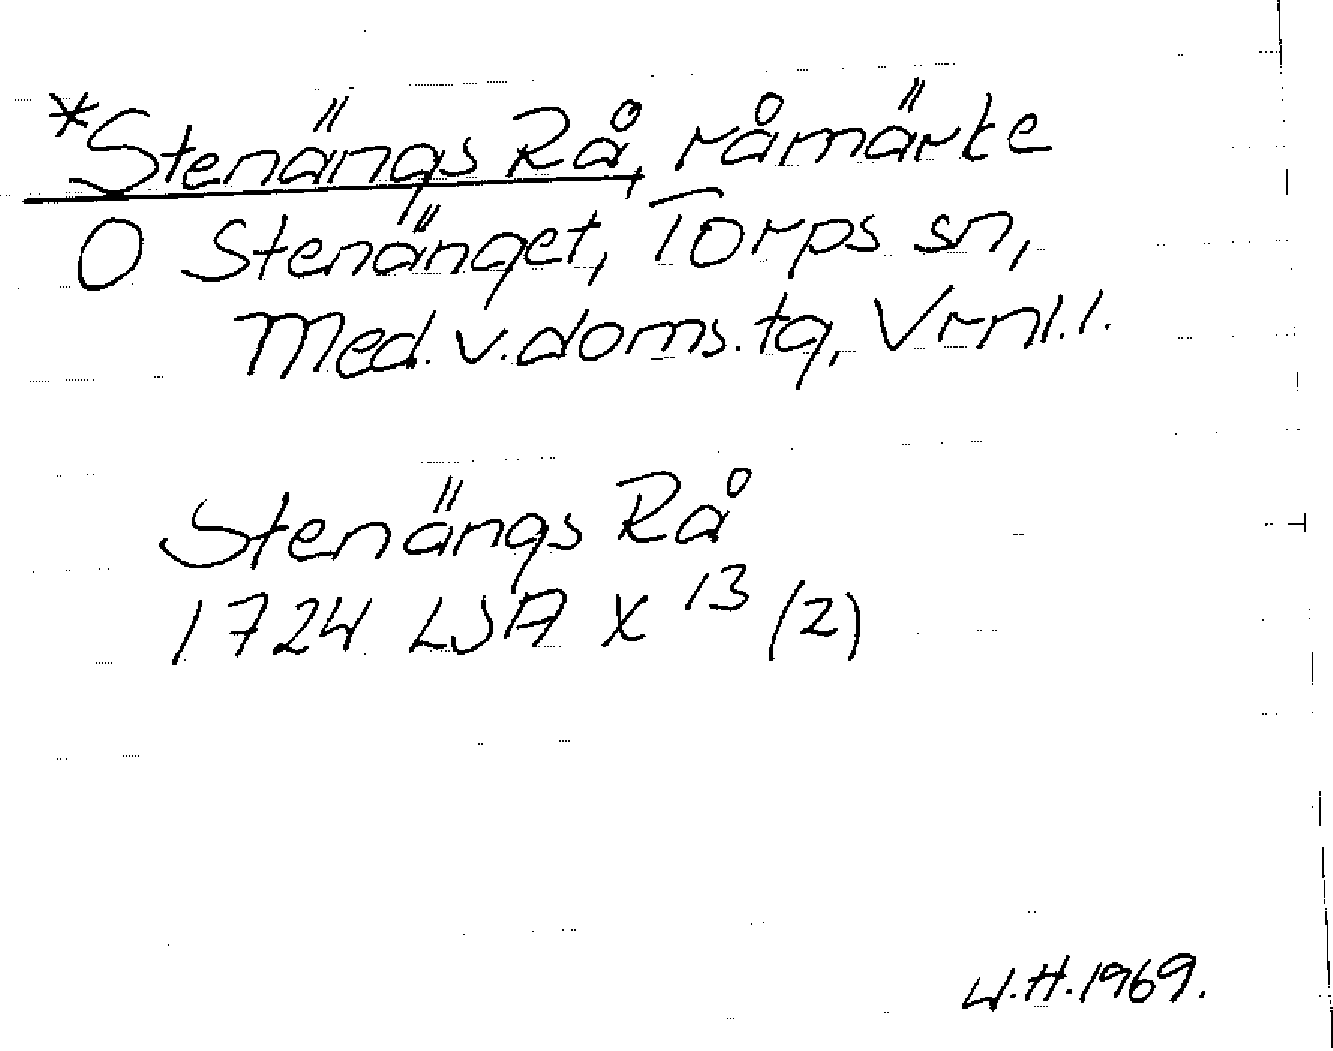 *Stenängs Rå, råmärke
O Stenänget, Torps sn,
Med. v. doms. tg, Vrnl. l.
Stenängs Rå
1724 LSA X 13 (2)
W.H. 1969.